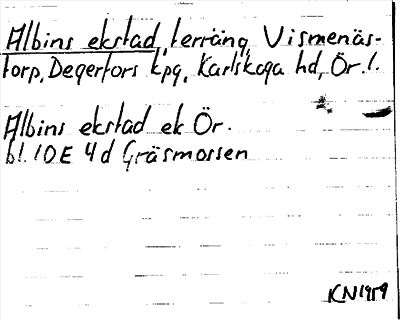 Albins ekstad, terräng, Vismenäs-
torp, Degerfors kpg, Karlskoga hd, Ör. l.
Albins ekstad ek Ör.
bl. 10E 4d Gräsmossen
KN1959